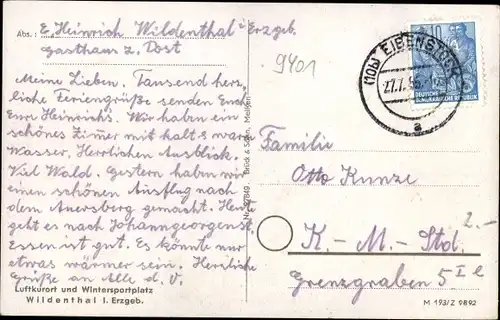 Abs.: E. Heinrich Wildenthal i. Erzgeb.
Gasthaus z. Post
9401
Meine Lieben. Tausend herz
liche Feriengrüße senden Euch
Eure Heinrichs. Wir haben ein
schönes Zimer mit kalt & warm
Wasser. Herrlichen Ausblick.
Viel Wald. Gestern haben wir
einen schönen Ausflug nach
dem Auersberg gemacht. Heut
geht es nach Johanngeorgenst.
Essen ist gut. Es könnte nur
etwas wärmer sein. Herzliche
Grüße an Alle d. O.
Luftkurort und Wintersportplatz
Wildenthal i. Erzgeb.
Brück & Sohn, Meißen
(10b) EIBENSTOCK
27.7.
a
10
DEUTSCHE
DEMOKRATISCHE REPUBLIK
Familie
Otto Kunze
K.-M.-Std.
Grenzgraben 5 I e
2.-
M 193/Z 9892